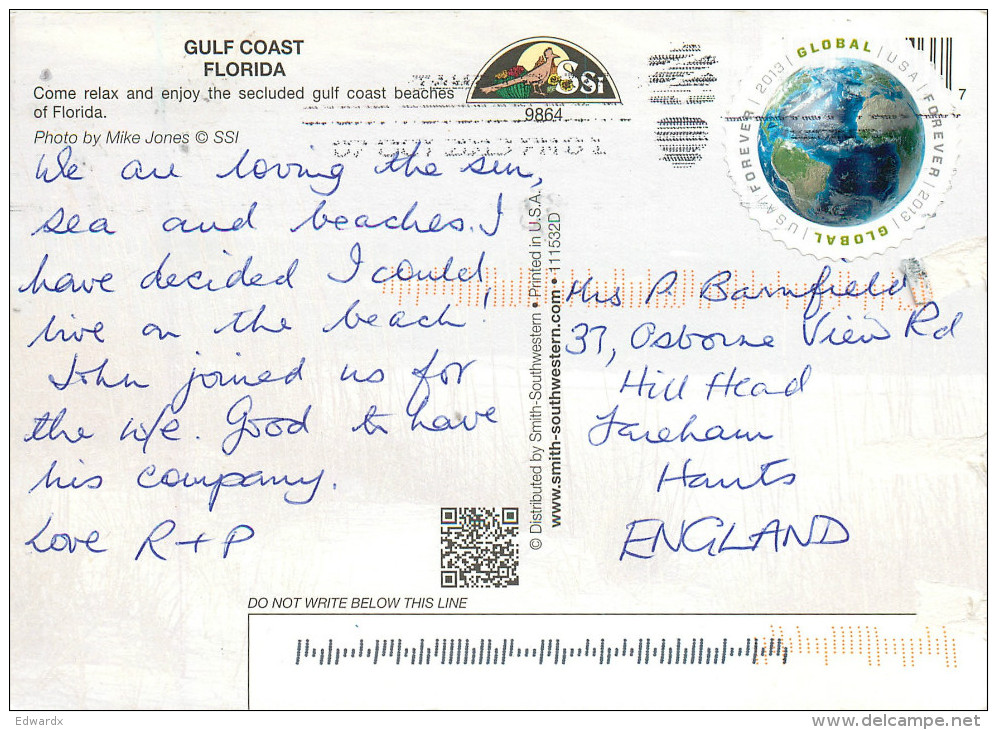 GULF COAST
FLORIDA
Come relax and enjoy the secluded gulf coast beaches
of Florida.
Photo by Mike Jones © SSI
SSi
9864
GLOBAL | USA | FOREVER | 2013 | GLOBAL | USA | FOREVER | 2013 |
7
We are loving the sun,
sea and beaches. I
have decided I could
live on the beach!
John joined us for
the w/e. Good to have
his company.
Love R + P
© Distributed by Smith-Southwestern • Printed in U.S.A.
www.smith-southwestern.com • 111532D
Mrs P. Bamfield
37, Osborne View Rd
Hill Head
Fareham
Hants
ENGLAND
DO NOT WRITE BELOW THIS LINE
Edwardx
delcampe.net